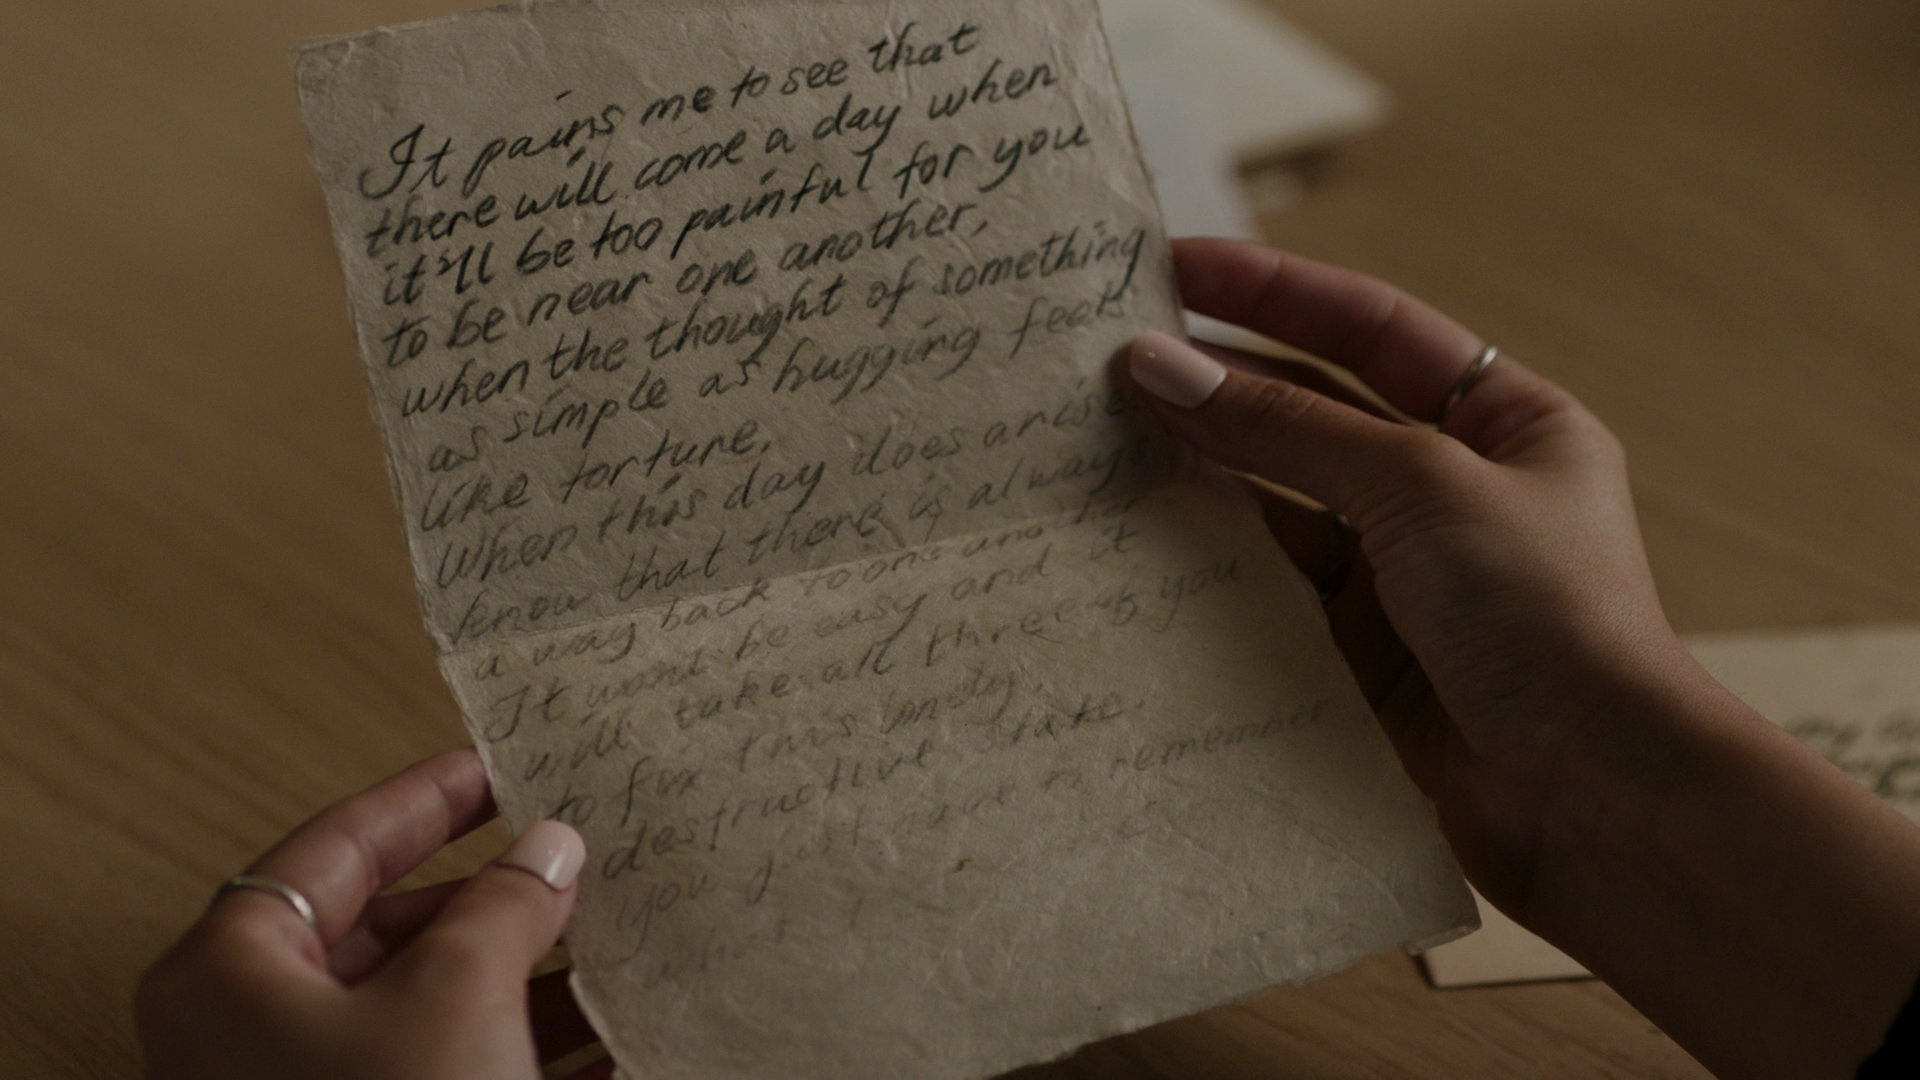 It pains me to see that
there will come a day when
it'll be too painful for you
to be near one another,
when the thought of something
as simple as hugging feels
like torture.
When this day does arise
know that there is always
a way back to one another
It wont be easy and it
will take all three of you
to fix this lonely,
destructive state.
you just have to remember
what